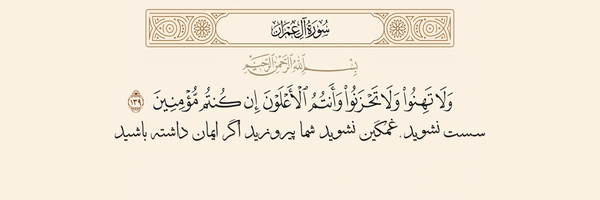 سُورَةُ آلِ عِمْرَان
بِسْمِ اللَّهِ الرَّحْمَٰنِ الرَّحِيمِ
وَلَا تَهِنُوا۟ وَلَا تَحْزَنُوا۟ وَأَنتُمُ ٱلْأَعْلَوْنَ إِن كُنتُم مُّؤْمِنِينَ ١٣٩
سست نشوید. غمگین نشوید شما پیروزید اگر ایمان داشته باشید